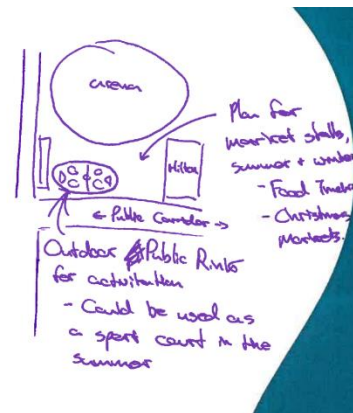 arena
Plan for
market stalls,
summer + winter
- Food Trucks
- Christmas
markets.
Hilton
← Public Corridor →
Outdoor Public Rink
for activation
- Could be used as
a sport court in the
summer